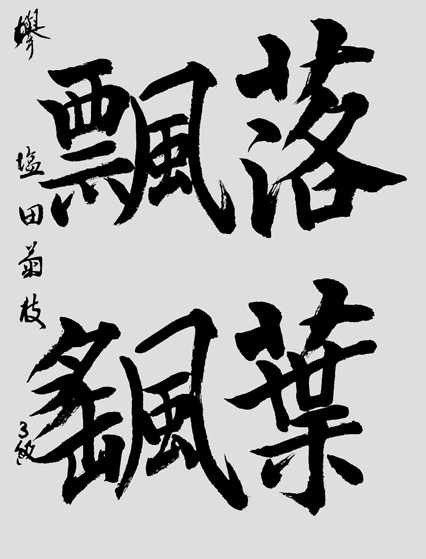 落葉
飄颻
欅 塩田菊枝 3級